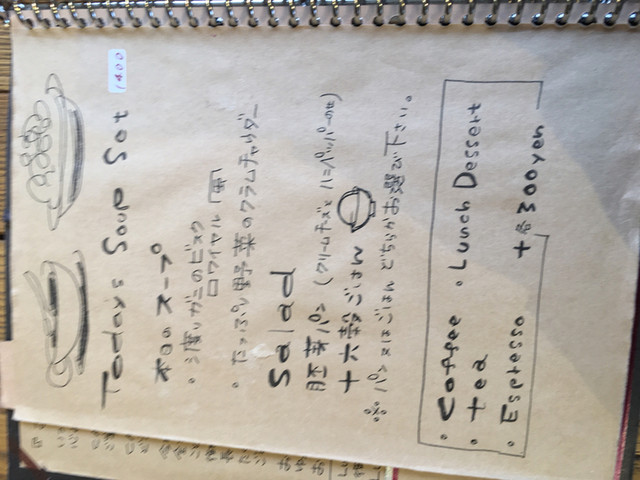 1400
Todays Soup Set
本日のスープ
・渡りガニのビスク
ロワイヤル
・たっぷり野菜のクラムチャウダー
Salad
胚芽パン (クリームチーズとハニーペッパーのせ)
十六穀ごはん
※パンとごはんはどちらかお選び下さい。
・Coffee
・tea
・Espresso
・Lunch Dessert
+各300yen